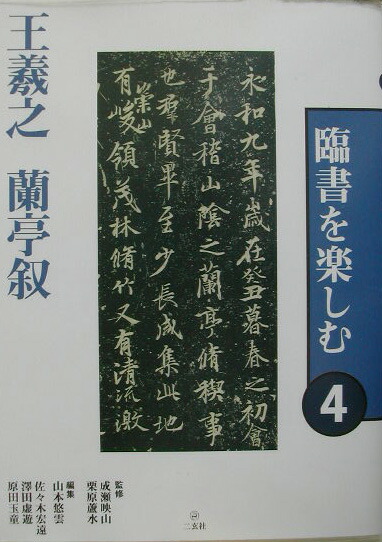 臨書を楽しむ
4
永和九年歲在癸丑暮春之初會
于會稽山陰之蘭亭脩稧事
也羣賢畢至少長咸集此地
有崇山峻領茂林脩竹又有清流激
王羲之 蘭亭叙
監修
成瀬映山
栗原蘆水
編集
山本悠雲
佐々木宏遠
澤田虚遊
原田玉童
二玄社